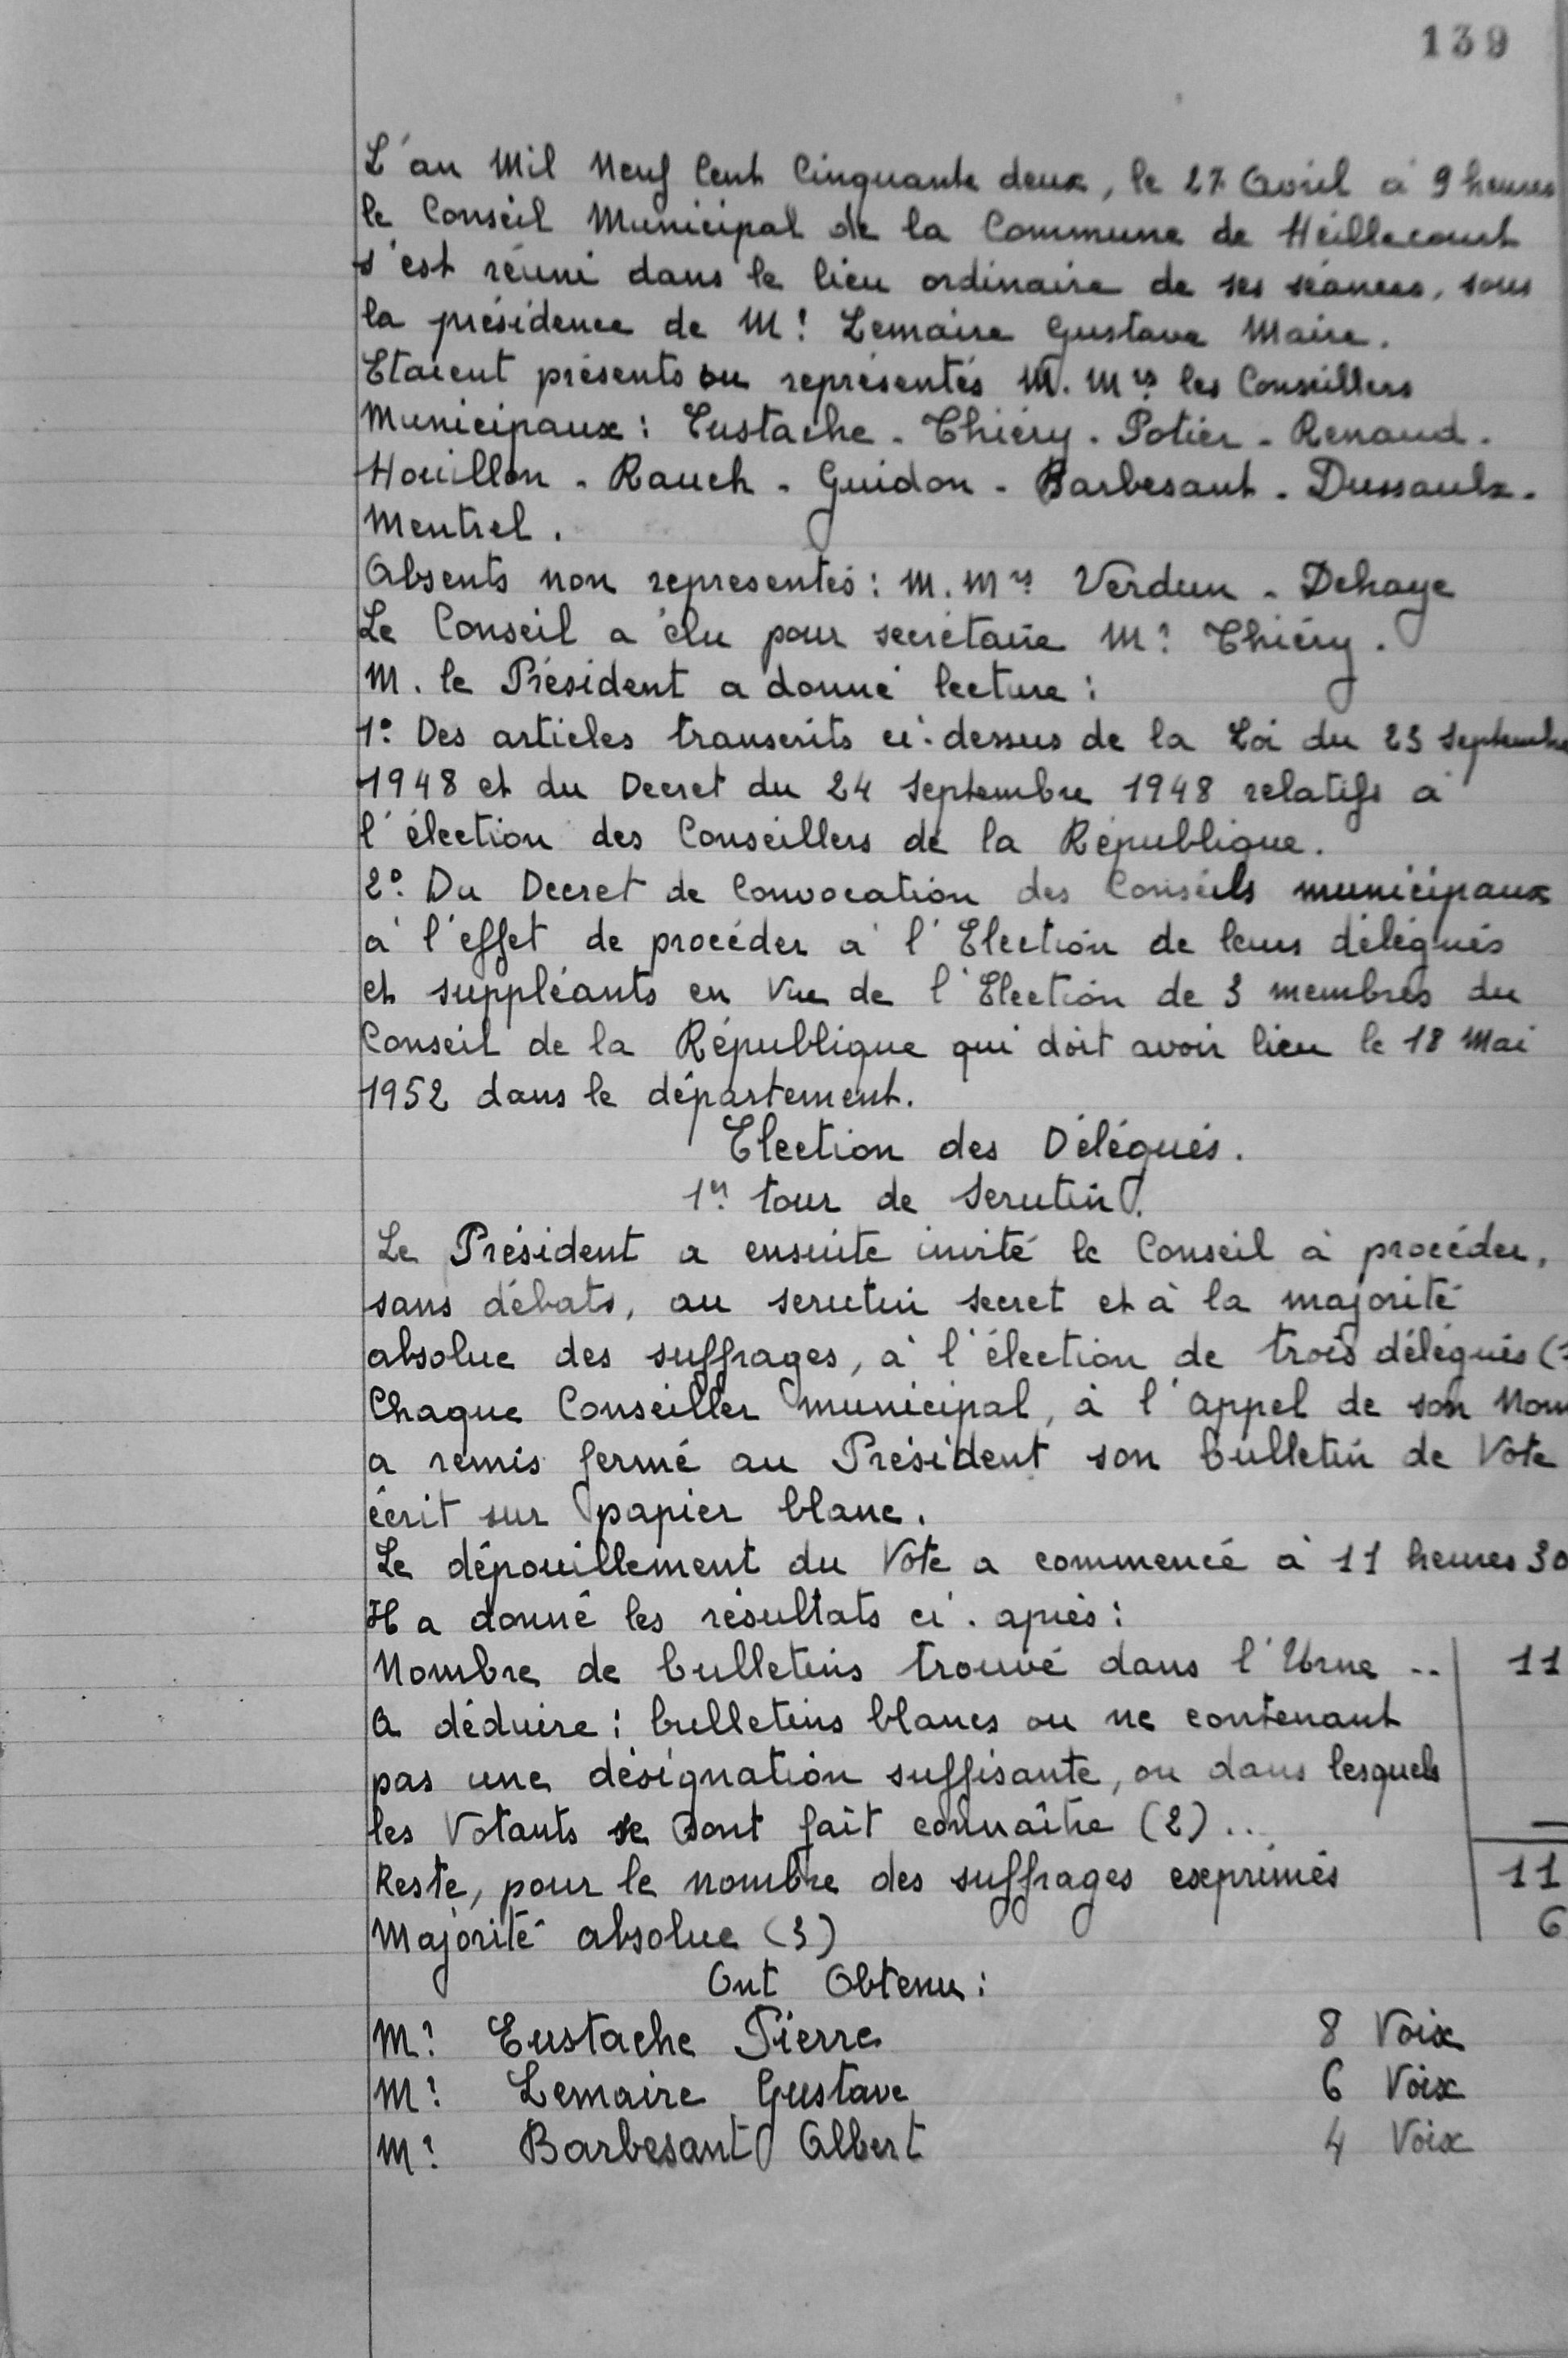 139
L'an Mil Neuf Cent Cinquante deux, le 27 Avril à 9 heures
le Conseil Municipal de la Commune de Heillecourt
s'est réuni dans le lieu ordinaire de ses séances, sous
la présidence de Mr Lemaire Gustave Maire.
Etaient présents ou représentés M. Mrs les Conseillers
Municipaux : Eustache - Thiéry - Potier - Renaud -
Houillon - Rauch - Guidon - Barbesant - Dussaulx -
Mentrel.
Absents non representés : M. Mrs Verdun - Dehaye
Le Conseil a élu pour secrétaire Mr Thiéry.
M. le Président a donné lecture :
1° Des articles transcrits ci-dessus de la Loi du 23 Septembre
1948 et du Decret du 24 Septembre 1948 relatifs à
l'élection des Conseillers de la République.
2° Du Decret de Convocation des Conseils municipaux
à l'effet de procéder à l'Election de leurs délégués
et suppléants en Vue de l'Election de 3 membres du
Conseil de la République qui doit avoir lieu le 18 Mai
1952 dans le département.
Election des Délégués.
1er tour de Scrutin.
Le Président a ensuite invité le Conseil à procéder,
sans débats, au scrutin secret et à la majorité
absolue des suffrages, à l'élection de trois délégués (
Chaque Conseiller municipal, à l'appel de son Nom
a remis fermé au Président son bulletin de Vote
écrit sur papier blanc.
Le dépouillement du Vote a commencé à 11 heures 30
Il a donné les résultats ci-après :
Nombre de bulletins trouvé dans l'Urne .. 11
A déduire : bulletins blancs ou ne contenant
pas une désignation suffisante, ou dans lesquels
les Votants se sont fait connaître (2) .. —
Reste, pour le nombre des suffrages exprimés 11
Majorité absolue (3) 6
Ont Obtenu :
Mr Eustache Pierre 8 Voix
Mr Lemaire Gustave 6 Voix
Mr Barbesant Albert 4 Voix